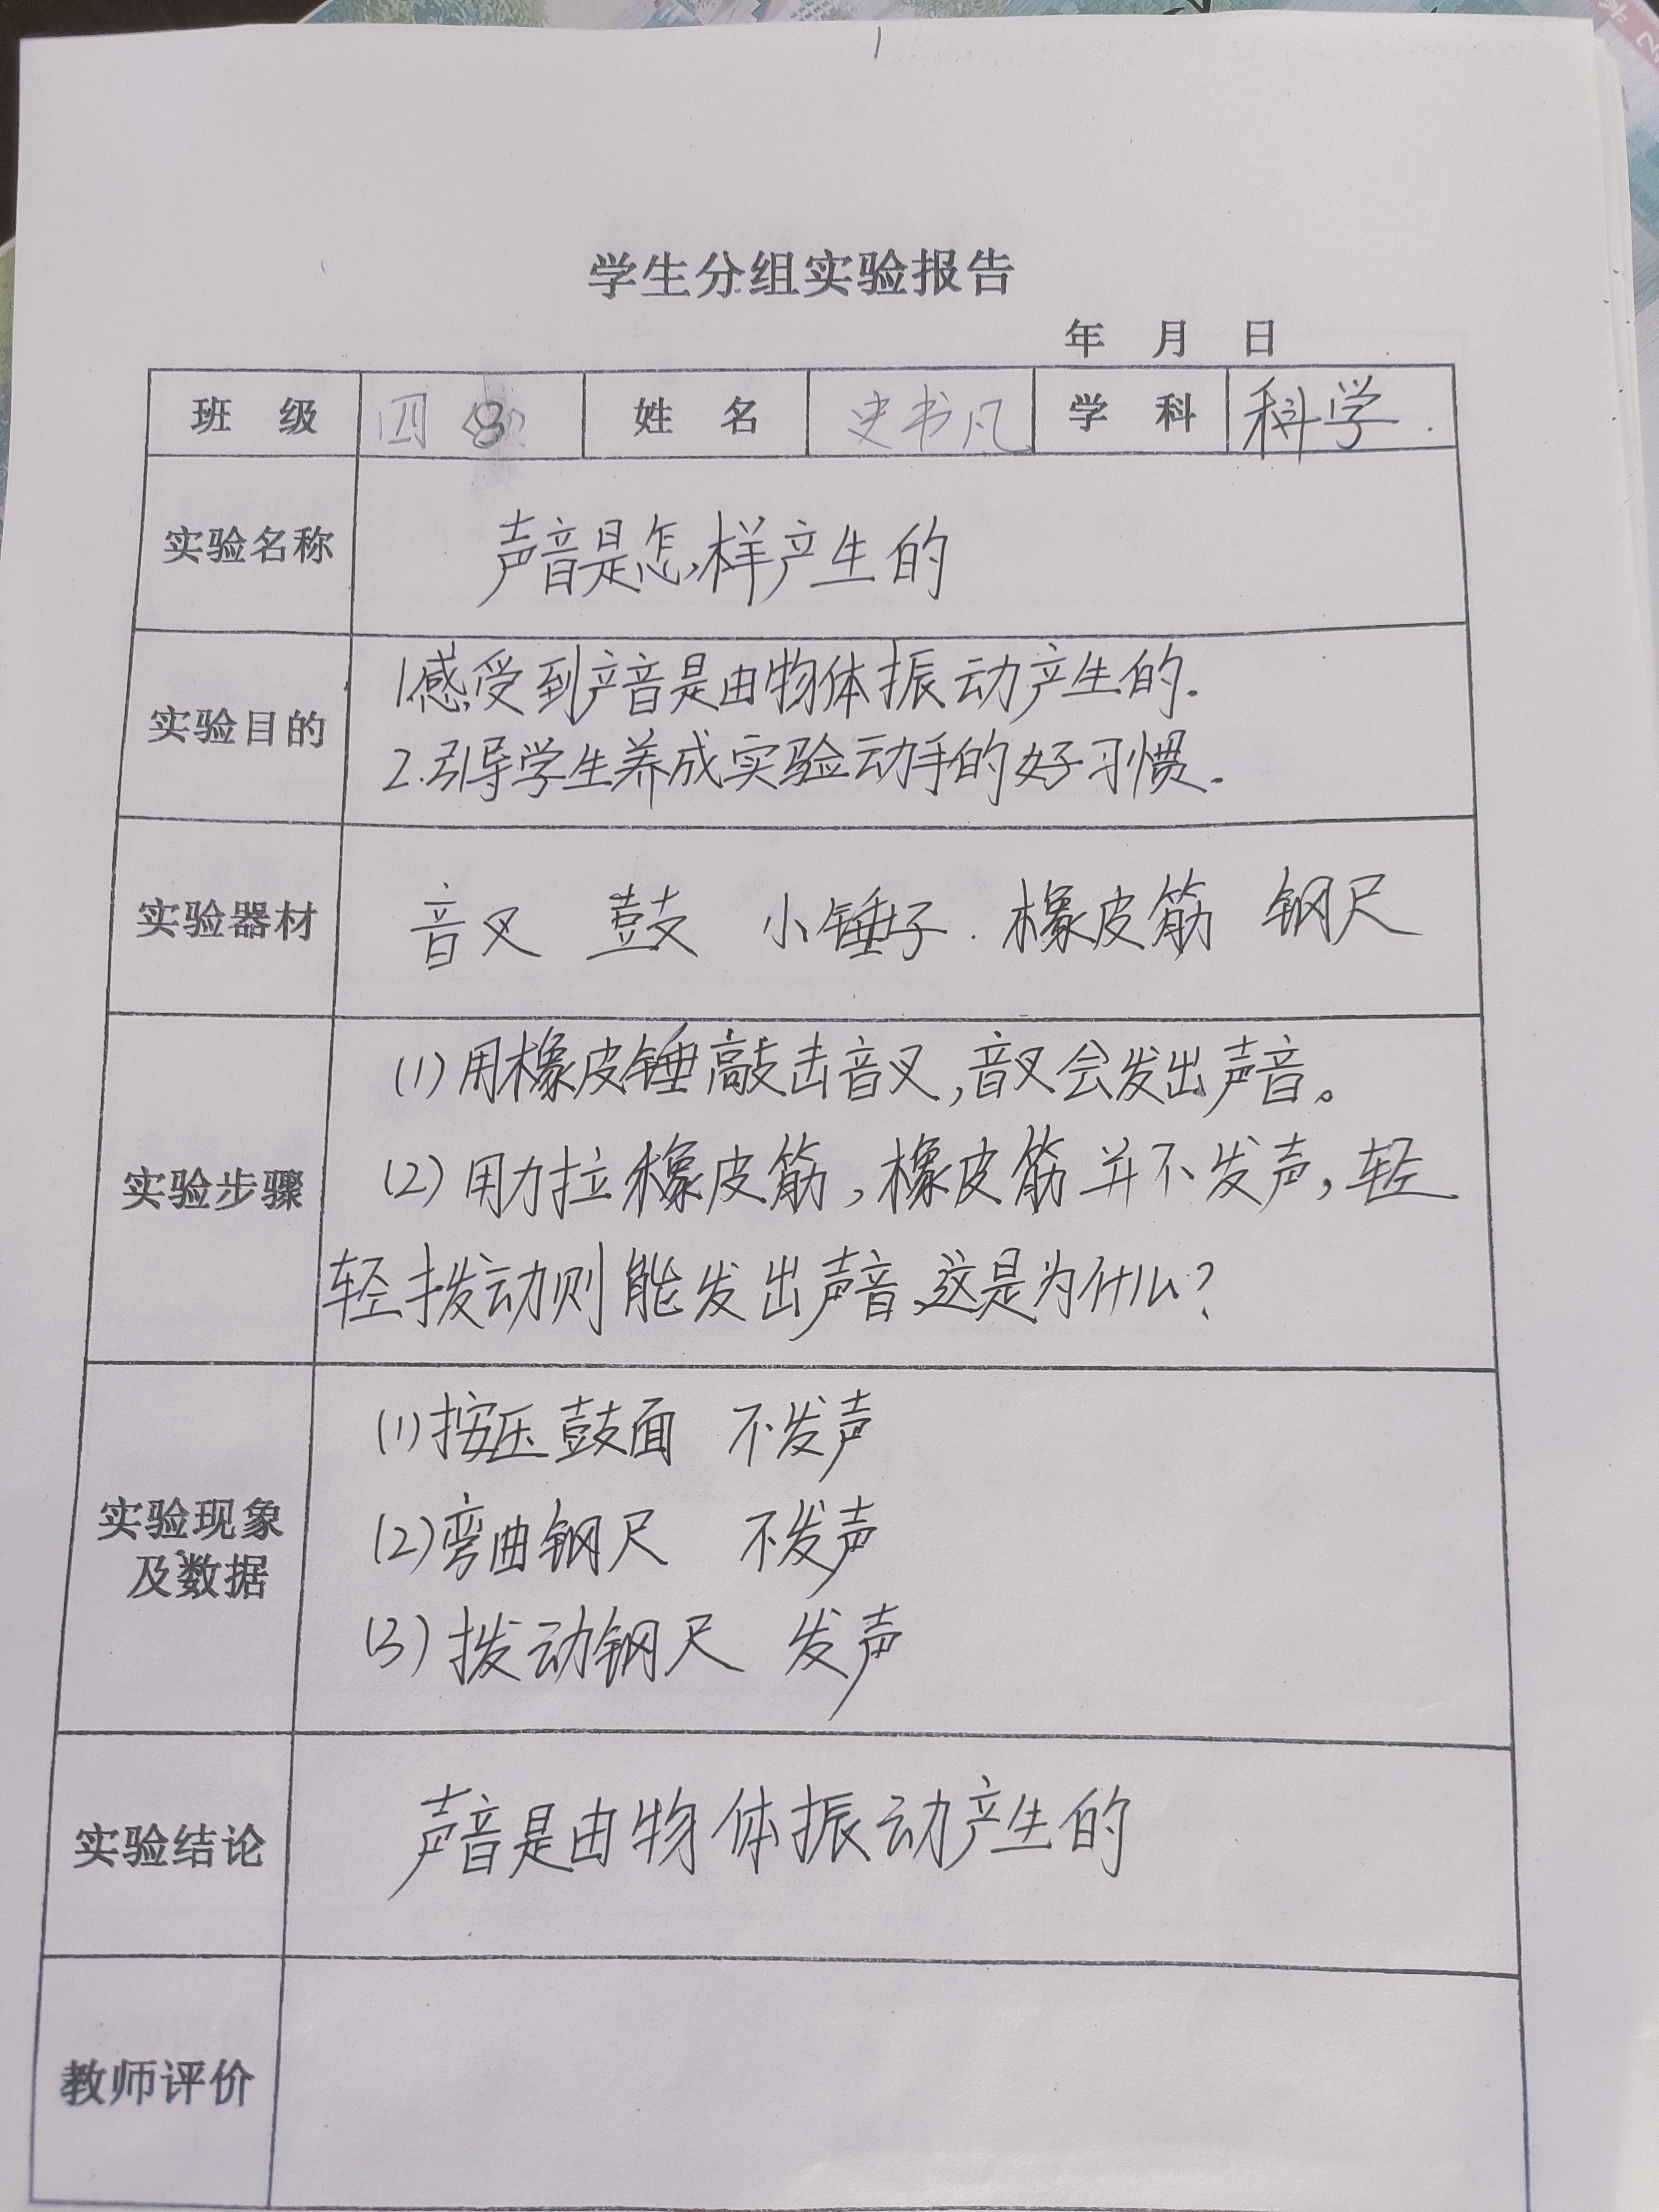 学生分组实验报告
年 月 日
班 级 四 8 姓 名 史书凡 学 科 科学
实验名称 声音是怎样产生的
实验目的
1.感受到声音是由物体振动产生的.
2.引导学生养成实验动手的好习惯.
实验器材 音叉 鼓 小锤子. 橡皮筋 钢尺
实验步骤
(1)用橡皮锤敲击音叉,音叉会发出声音。
(2)用力拉橡皮筋,橡皮筋并不发声,轻
轻拨动则能发出声音.这是为什么?
实验现象
及数据
(1)按压鼓面 不发声
(2)弯曲钢尺 不发声
(3)拨动钢尺 发声
实验结论 声音是由物体振动产生的
教师评价